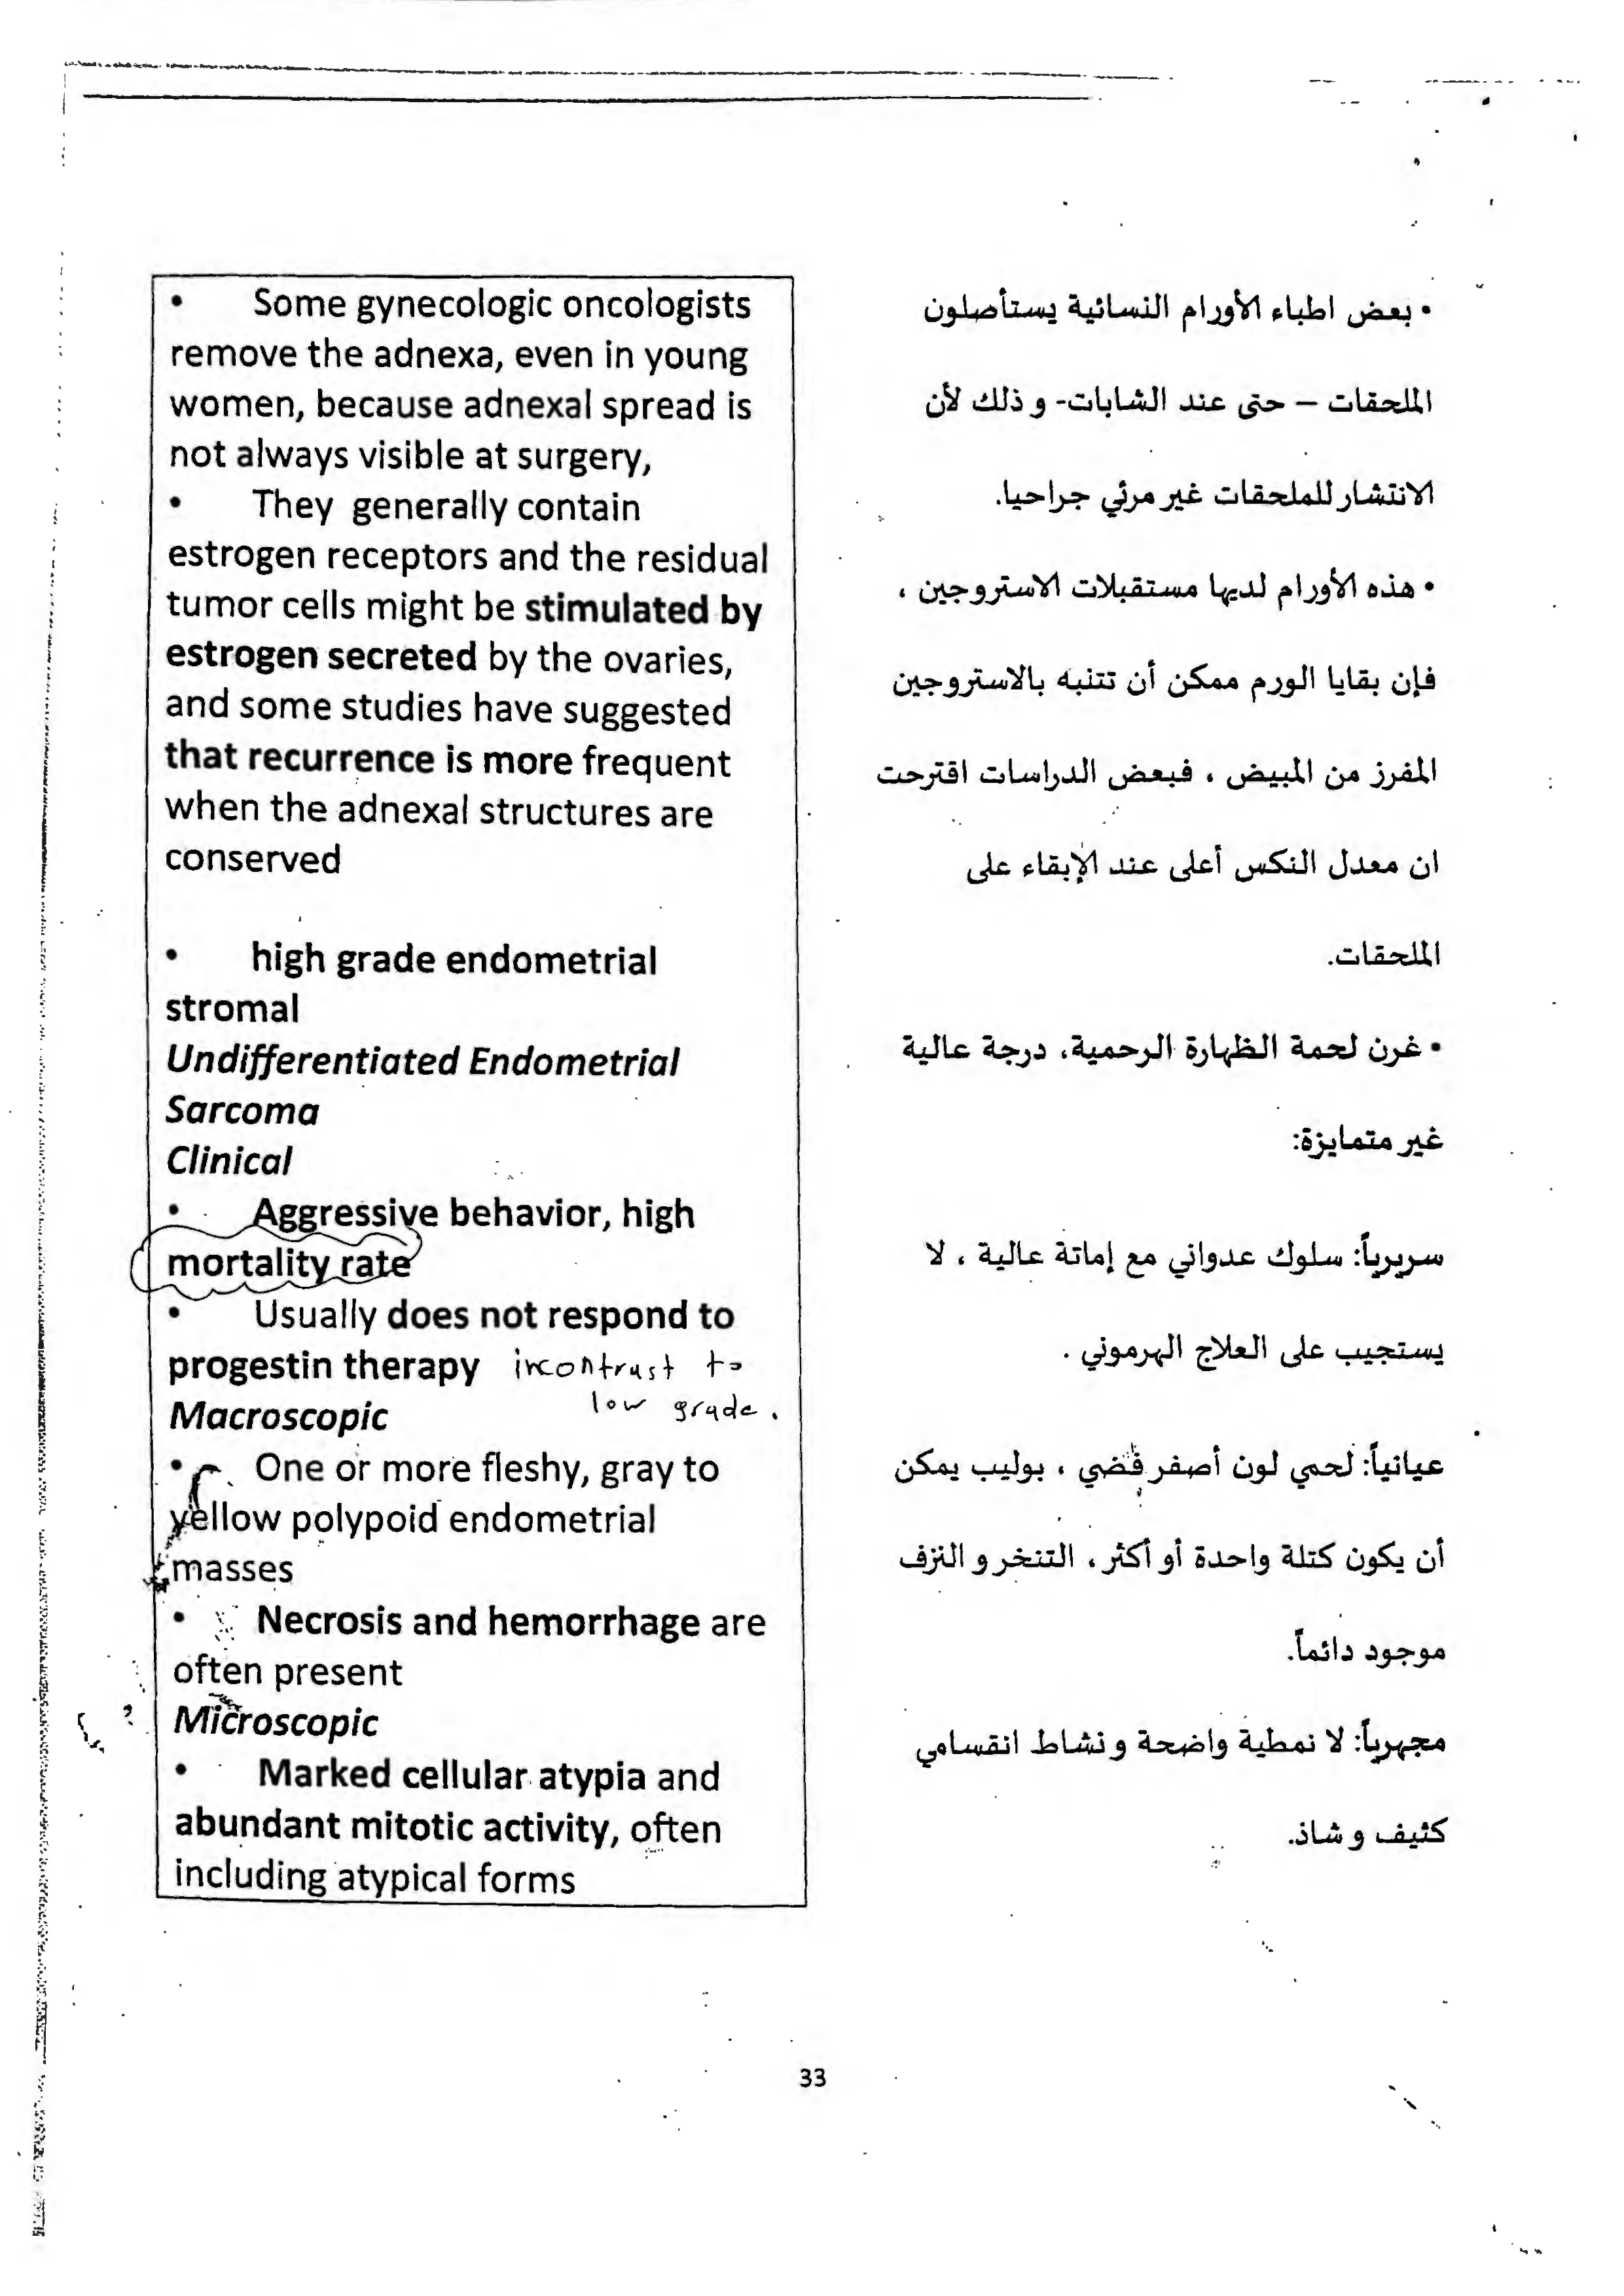 • Some gynecologic oncologists
remove the adnexa, even in young
women, because adnexal spread is
not always visible at surgery,
• They generally contain
estrogen receptors and the residual
tumor cells might be stimulated by
estrogen secreted by the ovaries,
and some studies have suggested
that recurrence is more frequent
when the adnexal structures are
conserved
• high grade endometrial
stromal
Undifferentiated Endometrial
Sarcoma
Clinical
• Aggressive behavior, high
mortality rate
• Usually does not respond to
progestin therapy incontrast to
low grade.
Macroscopic
• One or more fleshy, gray to
yellow polypoid endometrial
masses
• Necrosis and hemorrhage are
often present
Microscopic
• Marked cellular atypia and
abundant mitotic activity, often
including atypical forms
• بعض اطباء الأورام النسائية يستأصلون
الملحقات – حتى عند الشابات- و ذلك لأن
الانتشار للملحقات غير مرئي جراحيا.
• هذه الأورام لديها مستقبلات الاستروجين ،
فإن بقايا الورم ممكن أن تتنبه بالاستروجين
المفرز من المبيض ، فبعض الدراسات اقترحت
ان معدل النكس أعلى عند الإبقاء على
الملحقات.
• غرن لحمة الظهارة الرحمية، درجة عالية
غير متمايزة:
سريرياً: سلوك عدواني مع إماتة عالية ، لا
يستجيب على العلاج الهرموني .
عيانياً: لحمي لون أصفر فضي ، بوليب يمكن
أن يكون كتلة واحدة أو أكثر ، التنخر و النزف
موجود دائماً.
مجهرياً: لا نمطية واضحة و نشاط انقسامي
كثيف و شاذ.
33